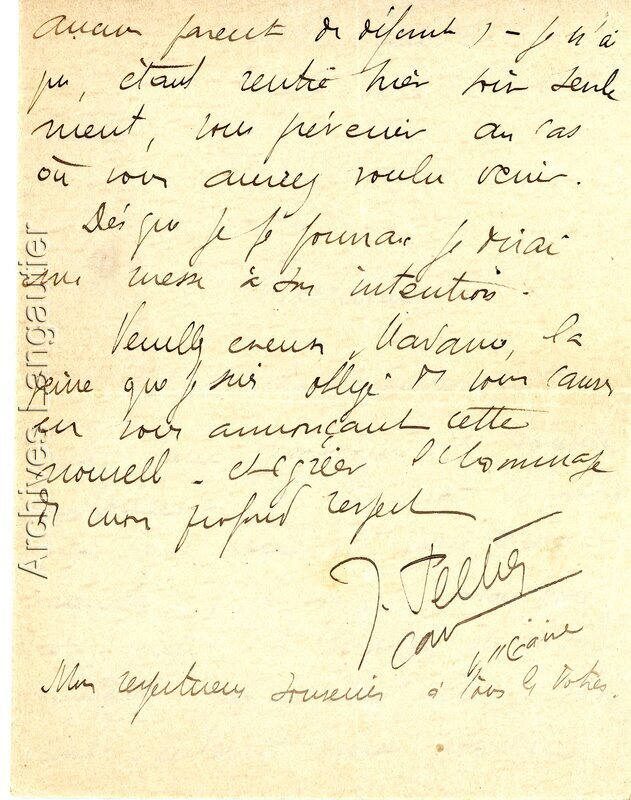 aucun parent du défunt) - Je n'ai
pu, étant rentré hier soir seule
ment, vous prévenir au cas
où vous auriez voulu venir.
Dès que je le pourrai je dirai
une messe à son intention.
Veuillez excuser, Madame, la
peine que je suis obligé de vous causer
en vous annonçant cette
nouvelle - et agréer l'hommage
de mon profond respect
J. Peltier
Mon respectueux souvenir à tous les vôtres.
Archives Lengautier